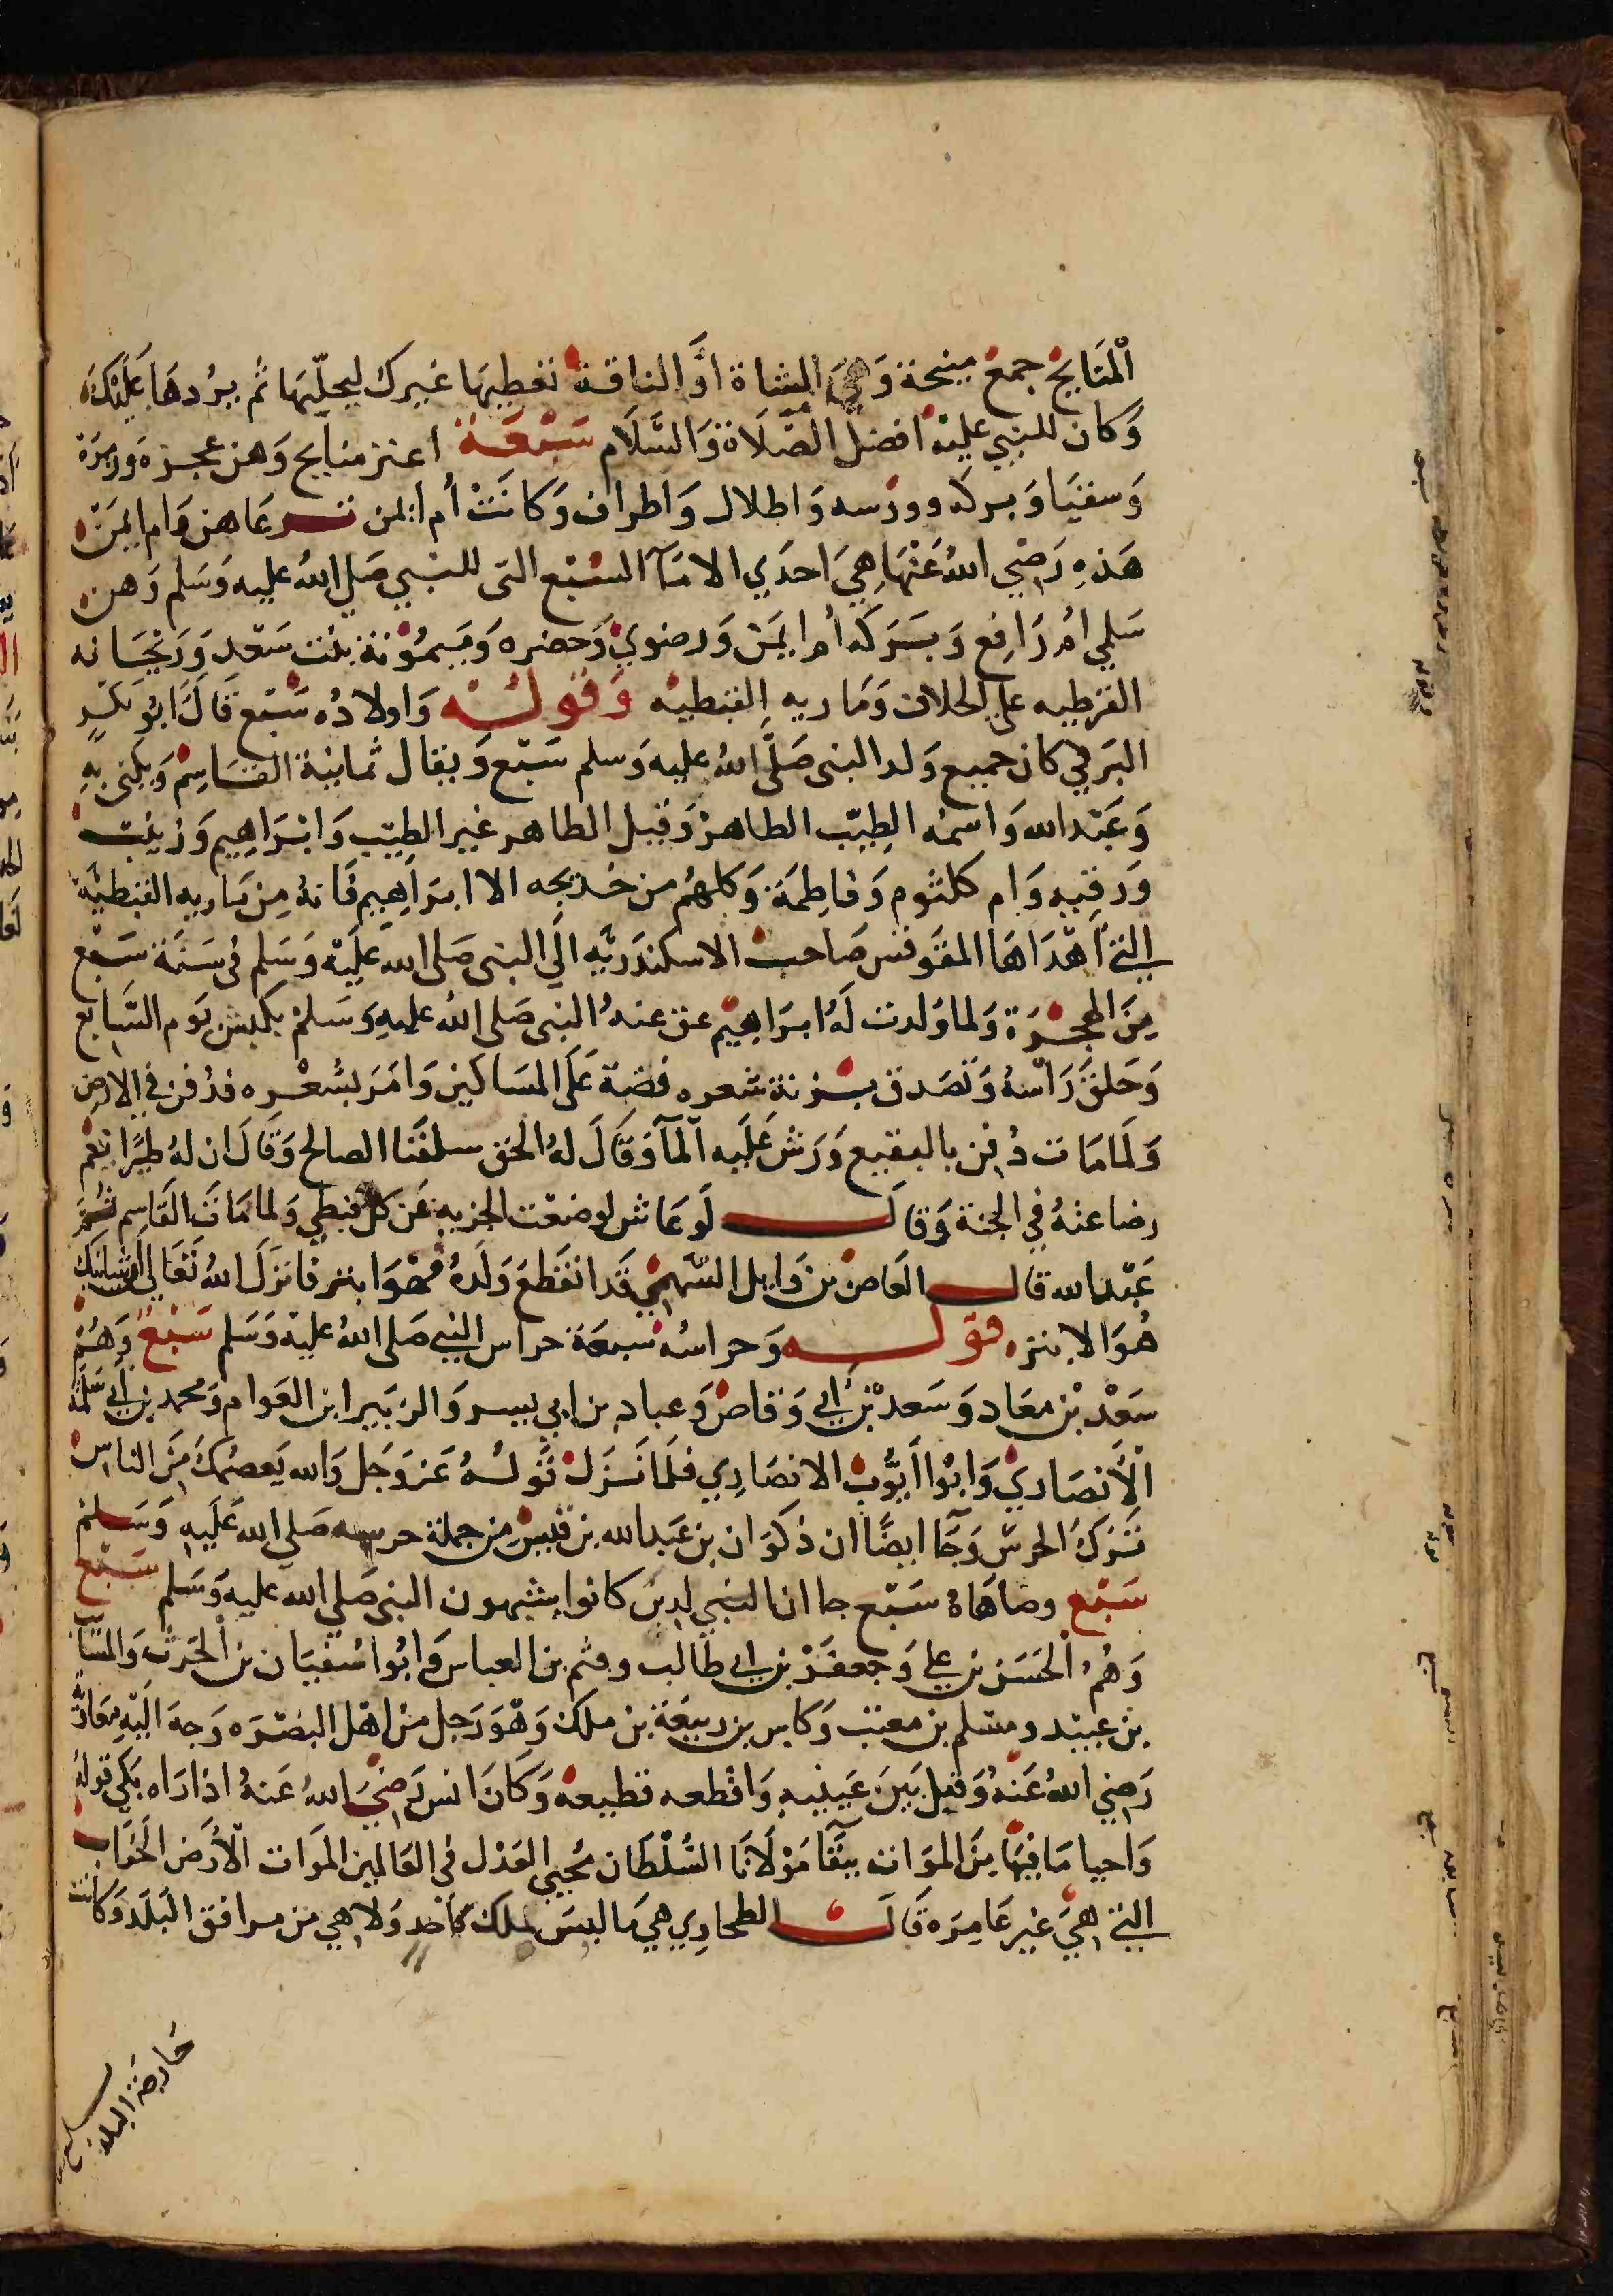 الْمَنَايِحْ جمع مينحة وَهيَ الشاة اوَّ الناقة تعطيها غيرك ليحلّبها ثم يرُدهَا عَلَيْكَ
وَكان للنبي عليه افضل الصَّلَاة وَالسَّلَام سَبْعَة اعنز منايح وَهن عجزة وَزمزة
وَسقيَا وَبركه وورسه وَاطلال وَاطراف وَكانَتْ أم ايمن ترعَاهن وَام ايمَن
هَذِهِ رَضِي اللهُ عَنْهَا هِيَ احدَي الامَآ السَّبْع التى للنبي صَلي اللهُ عليه وَسَلم وَهن
سَلمي امُ رَافع وَبَسَرَكه أم ايمَن وَرضوي وَحضره وَمَيمُوُنة بنْت سَعْد وَرَيْحَانه
القرظيه علي الخلاف وَمَاريه القبطيه وَقَولُـه وَاولادُه سَبْع قَالَ ابُو بَكر
البَرقي كان جميع وَلد النبى صَلَّى اللهُ عليه وَسلم سَبْع وَيقال ثمانية القَاسِمْ وَيكنى بِهِ
وَعَبْد الله وَاسمه الطيّب الطاهر وَقيل الطاهر غير الطيّب وَابْرَاهِيم وَزينب
وَرقيه وَام كلثوم وَفاطِمَة وَكلهُم من خديجه الا ابرَاهِيم فَانهُ مِن مَاريه القبطيَّة
التي اَهْدَاهَا المقَوقس صَاحب الاسكندَريَّه الَي النبى صَلى الله عَلَيْه وَسَلم فى سَنَة سَبْع
مِنَ الهجْرَة وَلما وُلدت لَهُ ابرَاهِيْم عق عنهُ النبى صَلى اللهُ عليهِ وَسَلمْ بكبش يَوم السَّابع
وَحَلقَ رَاسْهُ وَتَصَدق بزنة شعره فضة عَلَى المسَاكين وَامَرَ بشعْره فدُفن في الارض
وَلمامَات دُفِن بالبقيع وَرَش عَلَيه الْمآ وَقالَ لهُ الحق سلفَنا الصالح وَقَالَ ان لهُ ظيرًا تتم
رضاعهُ في الجنة وَقالَ لَو عَاش لوضعت الجزيه عَن كل قبطي وَلما مَات القَاسِم ثمَّ
عَبْد الله قال العَاص بن وَايل السَّهمي قَد انقَطع وَلَدهُ فهْوَا ابتر فانزَلَ اللهُ تَعَالي انَّ شَانئك
هُوَ الابتره قولـه وَحراسُه سبعَة حراس النبي صَلى اللهُ عليه وَسَلم سَبْع وَهُمْ
سَعْد بْن معَاد وَسَعدْ بْن أَبي وَقاصْ وَعباد بن ابي بيسر وَالزبَيرا بن العَوام وَمحمد بن أبي سَلمَة
الْأنصَاريْ وَابُوا أيُّوب الانصَارِي فلَما نَزَل قَولُهُ عَز وَجَل وَالله يَعصمُكَ مِنَ الناس
تَرَكَ الحرسَ وَجَا ايضًا ان ذكوَان بن عَبد الله بن قَيسِ مِن جملة حرسه صَلي الله عَلَيهِ وَسَلمْ
سَبْع وضاهَاهُ سَبْع جا ان النبي لدين كانوا يشبهون النبى صَلي الله عليه وَسَلم سَبْع
وَهُم اْلحَسَن بن علي وَجعفَرْ بن ابي طَالب وقثم بن العباس وَابُوا سُفيَان بن الحَرث وَالسَّايب
بن عبيْد ومسلم بن معتب وَكابس بن ربيعَة بن ملك وَهْوَ رَجل من اهْل البصْرَه وَجهَ الَيْه معَاوِيَّه
رَضِي اللهُ عَنهُ وَقبل بَينَ عَينيهِ وَاقْطعه قطيعه وَكانَ انس رَضيَ اللهُ عَنهُ اذا رَاه بَكي قولهُ
وَاحيا مَا فيهَا مِنَ الموَات ببقَا مَوْلَانَا السُّلْطَان مُحيي العَدْل فى العَالمين المَوات الْأَرض الخرَاب
التي هيَ غير عَامِرَه قَالَ الطحاوِي هيَ مَا ليسَ بملك لأحَد وَلا هِي من مرافق البَلَد وَكانت
خارجَة البلد